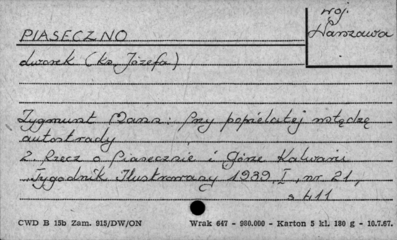 woj.
Warszawa
PIASECZNO
dworek (ks. Józefa)
Zygmunt Mann: Przy popielatej wstędze
autostrady
2. Rzecz o Piasecznie i Górze Kalwarii
Tygodnik Ilustrowany 1939, I, nr 21,
s 411
CWD B 15b Zam. 915/DW/ON Wrak 647 - 980.000 - Karton 5 kl. 180 g - 10.7.67.